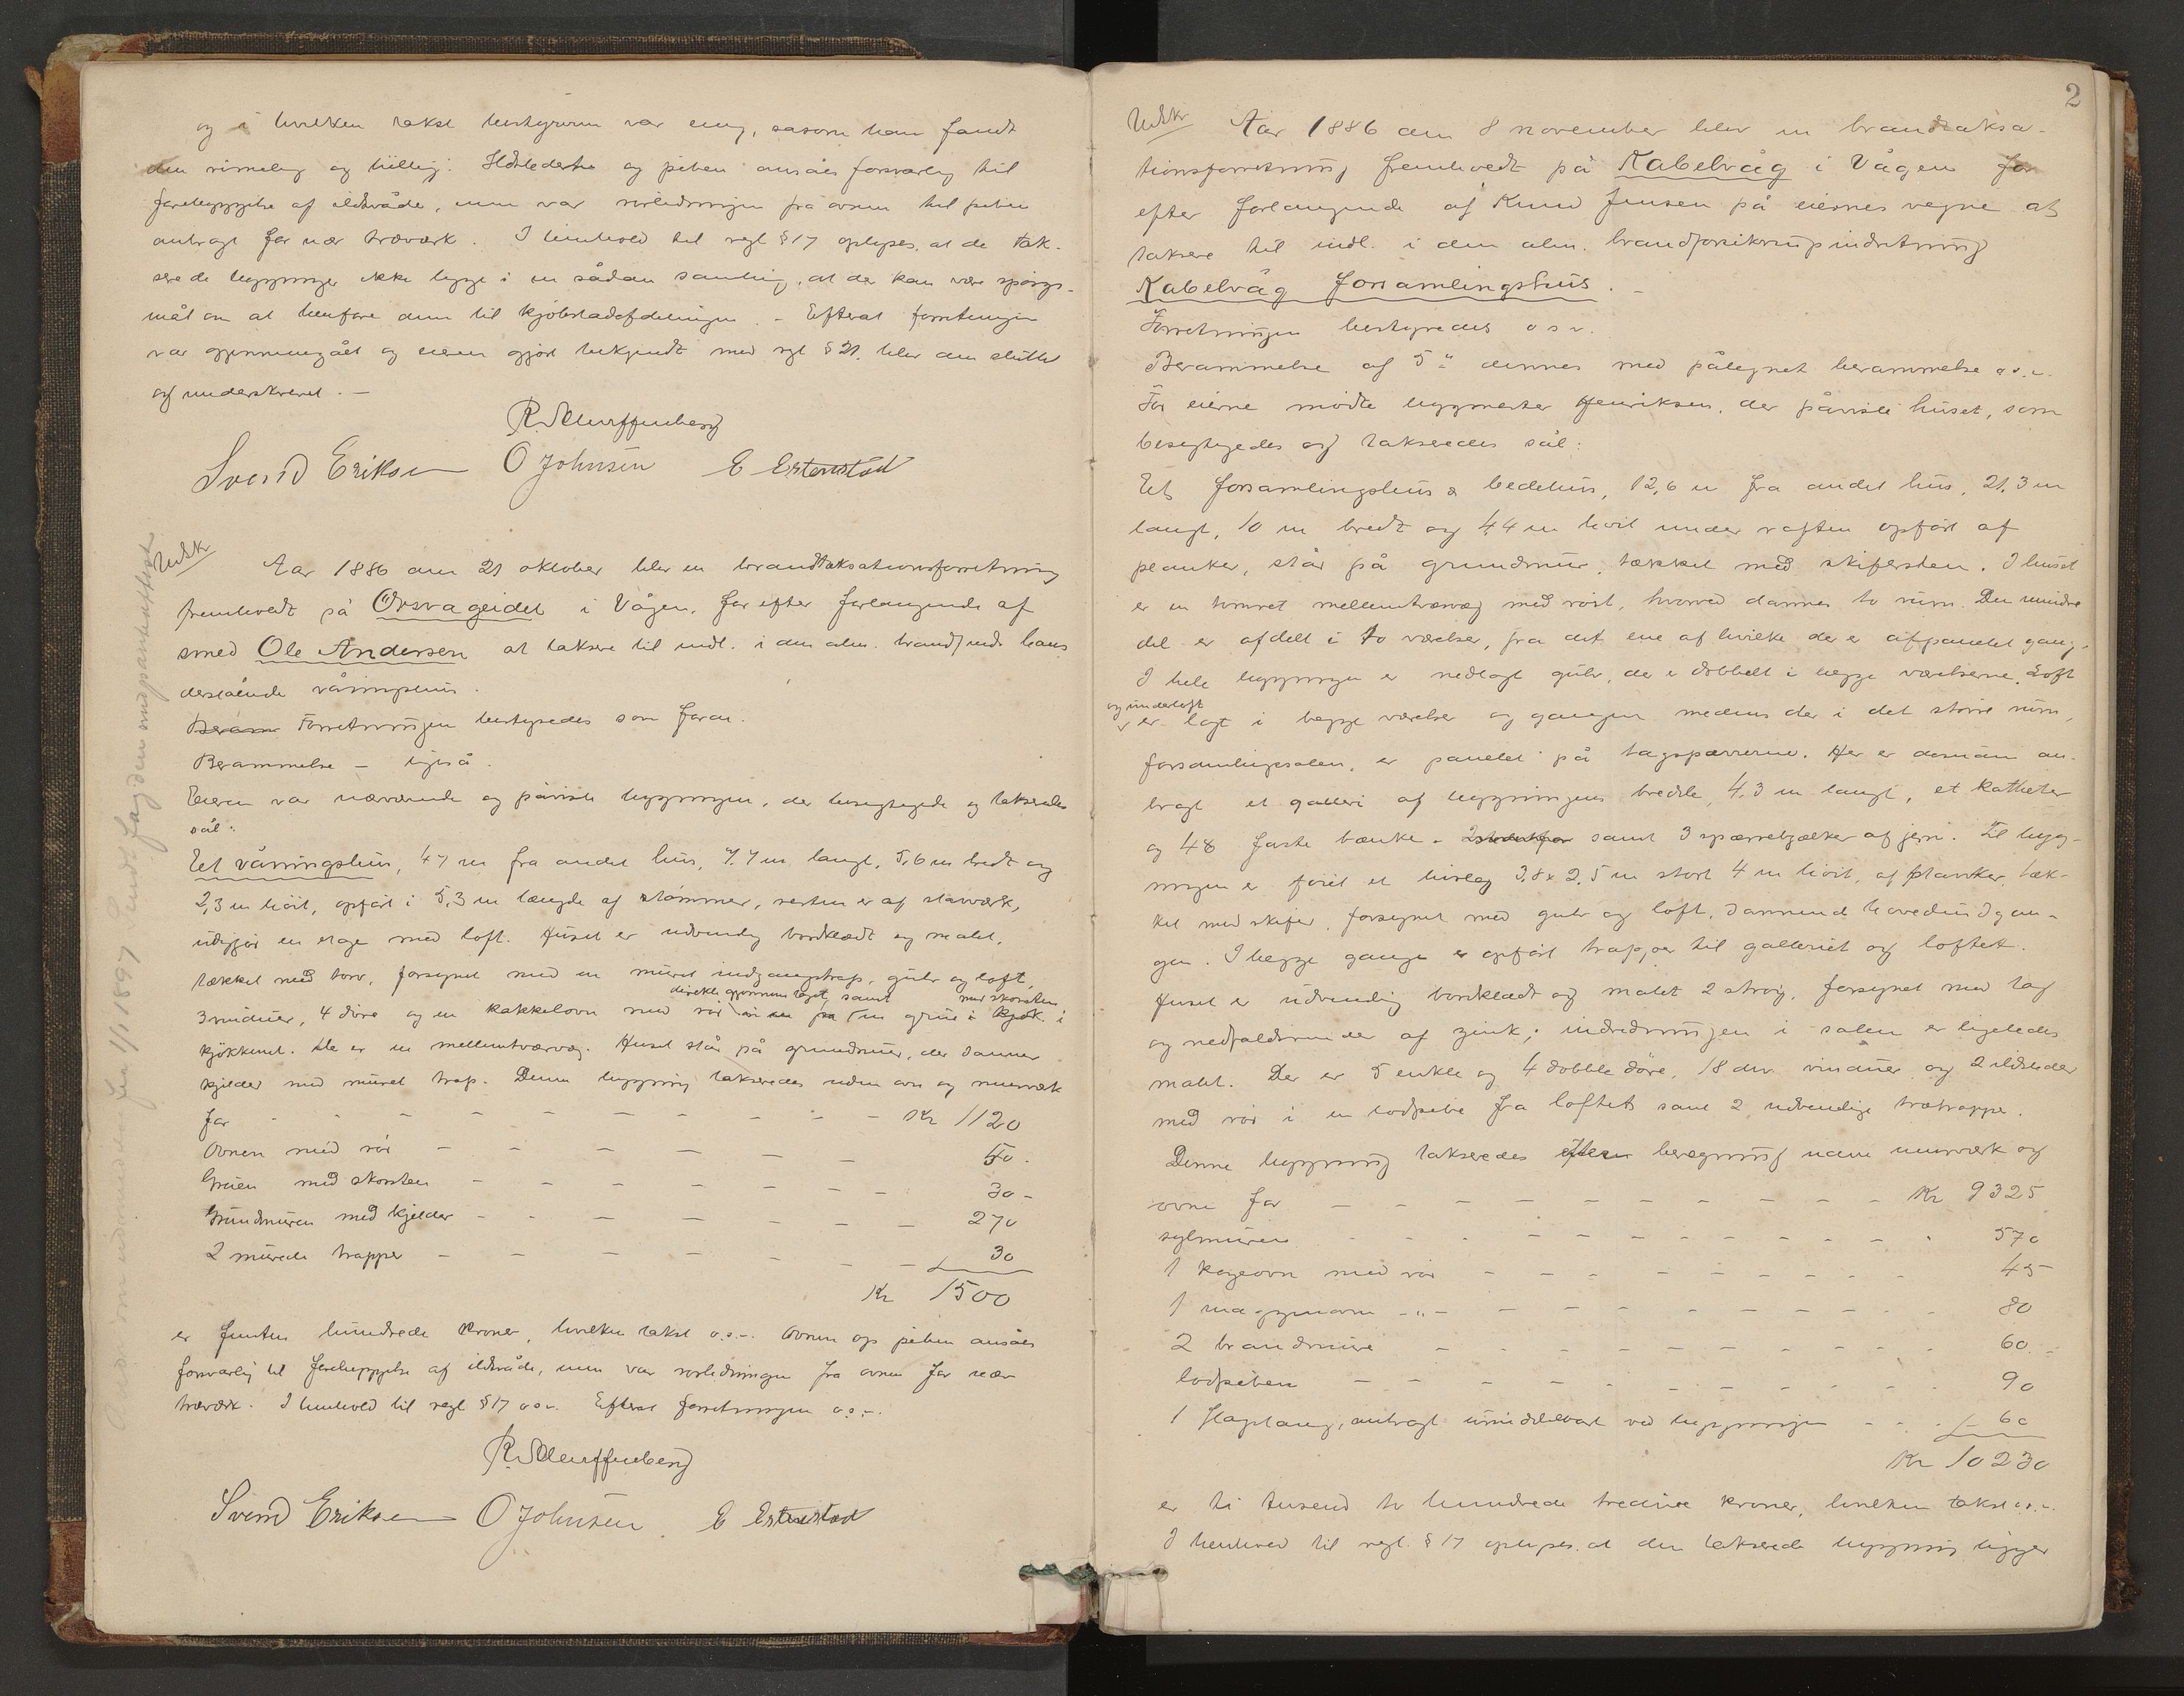 og i hvilken takst bestyreren var enig, såsom han fandt
den rimelig og billig. Ildstederne og piben ansåes forsvarlig til
forebyggelse af ildsvåde, men var rørledningen fra ovnen til piben
anbragt for nær træværk. I henhold til regl § 17 oplyses, at de tak-
serede bygninger ikke ligge i en sådan samling, at der kan være spørgs-
mål om at henføre dem til kjøbstadafdelingen. - Efterat forretningen
var gjennemgået og eieren gjort bekjendt med rgl § 21. blev den sluttet
og underskrevet. -
R. Schurffenberg
Svend Eriksen O Johnsen E Estenstad
Udskr
Aar 1886 den 21 oktober blev en brandtaksationsforretning
fremholdt på Örsvågeidet i Vågen, for efter forlangende af
smed Ole Andersen at taksere til indl. i den alm. brandf.indr. hans
derstående våningshus.
Beram Forretningen bestyredes som foran.
Berammelse - ligeså.
Eieren var nærværende og påviste bygningen, der besigtigede og takseredes
sål:
Et våningshus, 47 m fra andet hus, 7,7 m langt, 5,6 m bredt og
2,3 m høit, opført i 5,3 m længde af tømmer, resten er af stavværk,
udgjør en etage med loft. Huset er udvendig bordklædt og malet,
tækket med torv, forsynet med en muret indgangstrap, gulv og loft,
direkte gjennem taget, samt med skorsten
3 vinduer, 4 døre og en kakkelovn med rør en grue i kjøk. i
kjøkkenet. Der er en mellemtværvæg. Huset står på grundmur, der danner
kjelder med muret trap. Denne bygning takseredes uden ovn og murværk
for - - - - - - - - Kr 1120
Ovnen med rør - - - - - - 50 -
Gruen med skorsten - - - - - - 30 -
Grundmuren med kjelder - - - - - - 270
2 murede trapper - - - - - 30
Kr 1500
er femten hundrede kroner, hvilken takst o.s.v. Ovnen og piben ansåes
forsvarlig til forebyggelse af ildsvåde, men var rørledningen fra ovnen for nær
træværk. I henhold til regl § 17 o s v. Efterat forretningen o.s.v.
R. Schurffenberg
Svend Eriksen O Johnsen. E Estenstad
2
Udskr
Aar 1886 den 8 november blev en brandtaksa-
tionsforretning fremholdt på Kabelvåg i Vågen for
efter forlangende af Knud Jensen på eiernes vegne at
taksere til indl. i den alm. brandforsikringsindretning
Kabelvåg forsamlingshus. -
Forretningen bestyredes o s v.
Berammelse af 5te dennes med påtegnet berammelse o s.v.
For eierne mødte bygmester Henriksen, der påviste huset, som
besigtigedes og takseredes sål:
Et forsamlingshus & bedehus, 12,6 m fra andet hus, 21,3 m
langt, 10 m bredt og 4,4 m høit under raften opført af
planker, står på grundmur, tækket med skifersten. I huset
er en tømret mellemtværvæg med røst, hvorved dannes to rum. Den mindre
del er afdelt i to værelser, fra det ene af hvilke der er afpanelet gang.
I hele bygningen er nedlagt gulv, der er dobbelt i begge værelserne. Loft
og underloft
er lagt i begge værelser og gangen medens der i det større rum,
forsamlingssalen, er panelet på tagsparrerne. Her er desuden an-
bragt et galleri af bygningens bredde, 4,3 m langt, et katheter
og 48 faste bænke - samt 3 spærrebjælker af jern. Til byg-
ningen er føiet et bislag 3,8 x 2,5 m stort 4 m høit, af planker, tæk-
ket med skifer, forsynet med gulv og loft, dannende hovedindgan-
gen. I begge gange er opført trapper til galleriet og loftet.
Huset er udvendig bordklædt og malet 2 strøg, forsynet med tag
og nedfaldsrender af zink; indredningen i salen er ligeledes
malet. Der er 5 enkle og 4 dobble døre, 18 div vinduer og 2 ildsteder
med rør i en lodpibe fra loftet samt 2 udvendige trætrapper.
Denne bygning takseredes efter beregning uden murværk og
ovne for - - - - - - - - - Kr 9325
sylmuren - - - - - - - - - 570
1 kogeovn med rør - - - - - - - 45
1 magasinovn - " - - - - - - - - 80
2 brandmure - - - - - - - - 60. -
lodpiben - - - - - - - - - 90
1 Flagstang, anbragt umiddelbart ved bygningen - - - 60
Kr 10230
er ti tusend to hundrede tredive kroner, hvilken takst o.s.v.
I henhold til regl. § 17 oplyses, at den takserede bygning ligger